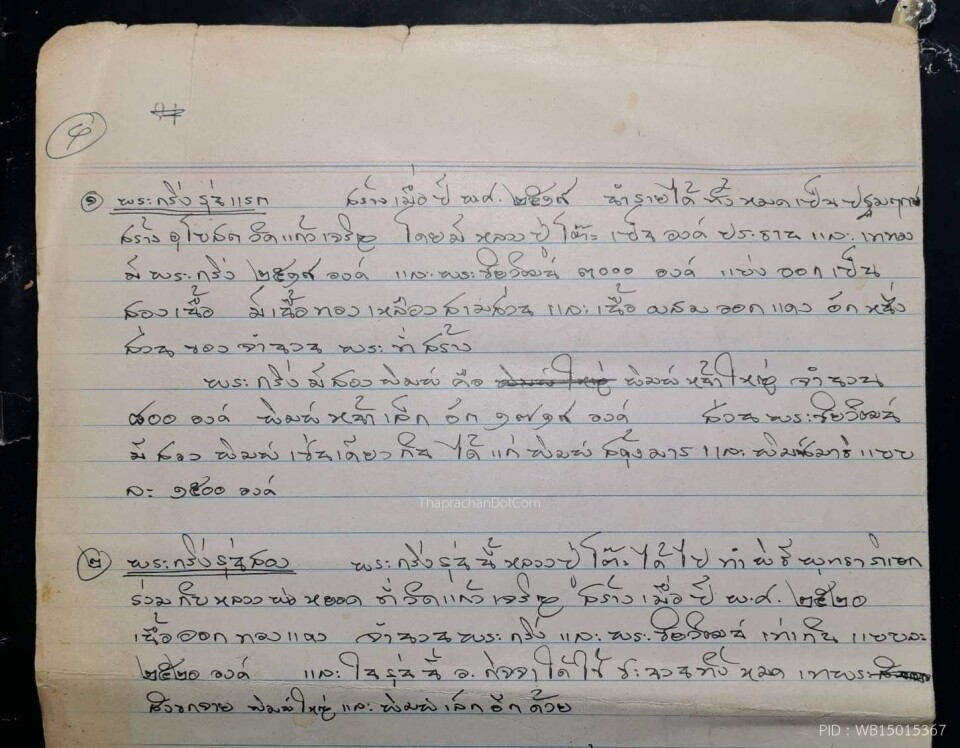 ๔
๑ พระกริ่งรุ่นแรก สร้างเมื่อปี พ.ศ. ๒๕๑๙ นำรายได้ทั้งหมดเป็นปฐมฤกษ์
สร้างอุโบสถวัดแก้วเจริญ โดยมีหลวงปู่โต๊ะ เป็นองค์ประธาน และเททอง
มีพระกริ่ง ๒๕๑๙ องค์ และพระชัยวัฒน์ ๓๐๐๐ องค์ แบ่งออกเป็น
สองเนื้อ มีเนื้อทองเหลืองสามส่วน และเนื้อผสมออกแดง อีกหนึ่ง
ส่วนของจำนวนพระที่สร้าง
พระกริ่งมีสองพิมพ์ คือ พิมพ์หน้าใหญ่ จำนวน
๘๐๐ องค์ พิมพ์หน้าเล็ก อีก ๑๗๑๙ องค์ ส่วนพระชัยวัฒน์
มีสองพิมพ์เช่นเดียวกัน ได้แก่ พิมพ์สดุ้งมาร และพิมพ์สมาธิ แบบ
ละ ๑๕๐๐ องค์
ThaprachanDotCom
๒ พระกริ่งรุ่นสอง พระกริ่งรุ่นนี้หลวงปู่โต๊ะได้ไปทำพิธีพุทธาภิเษก
ร่วมกับหลวงพ่อหยอด ที่วัดแก้วเจริญ สร้างเมื่อปี พ.ศ. ๒๕๒๐
เนื้อออกทองแดง จำนวนพระกริ่ง และพระชัยวัฒน์ เท่ากัน แบบละ
๒๕๒๐ องค์ และในรุ่นนี้ อ. ได้ใช้ชะนวนทั้งหมด เทพระ
สังขจาย พิมพ์ใหญ่ และพิมพ์เล็กอีกด้วย
PID : WB15015367